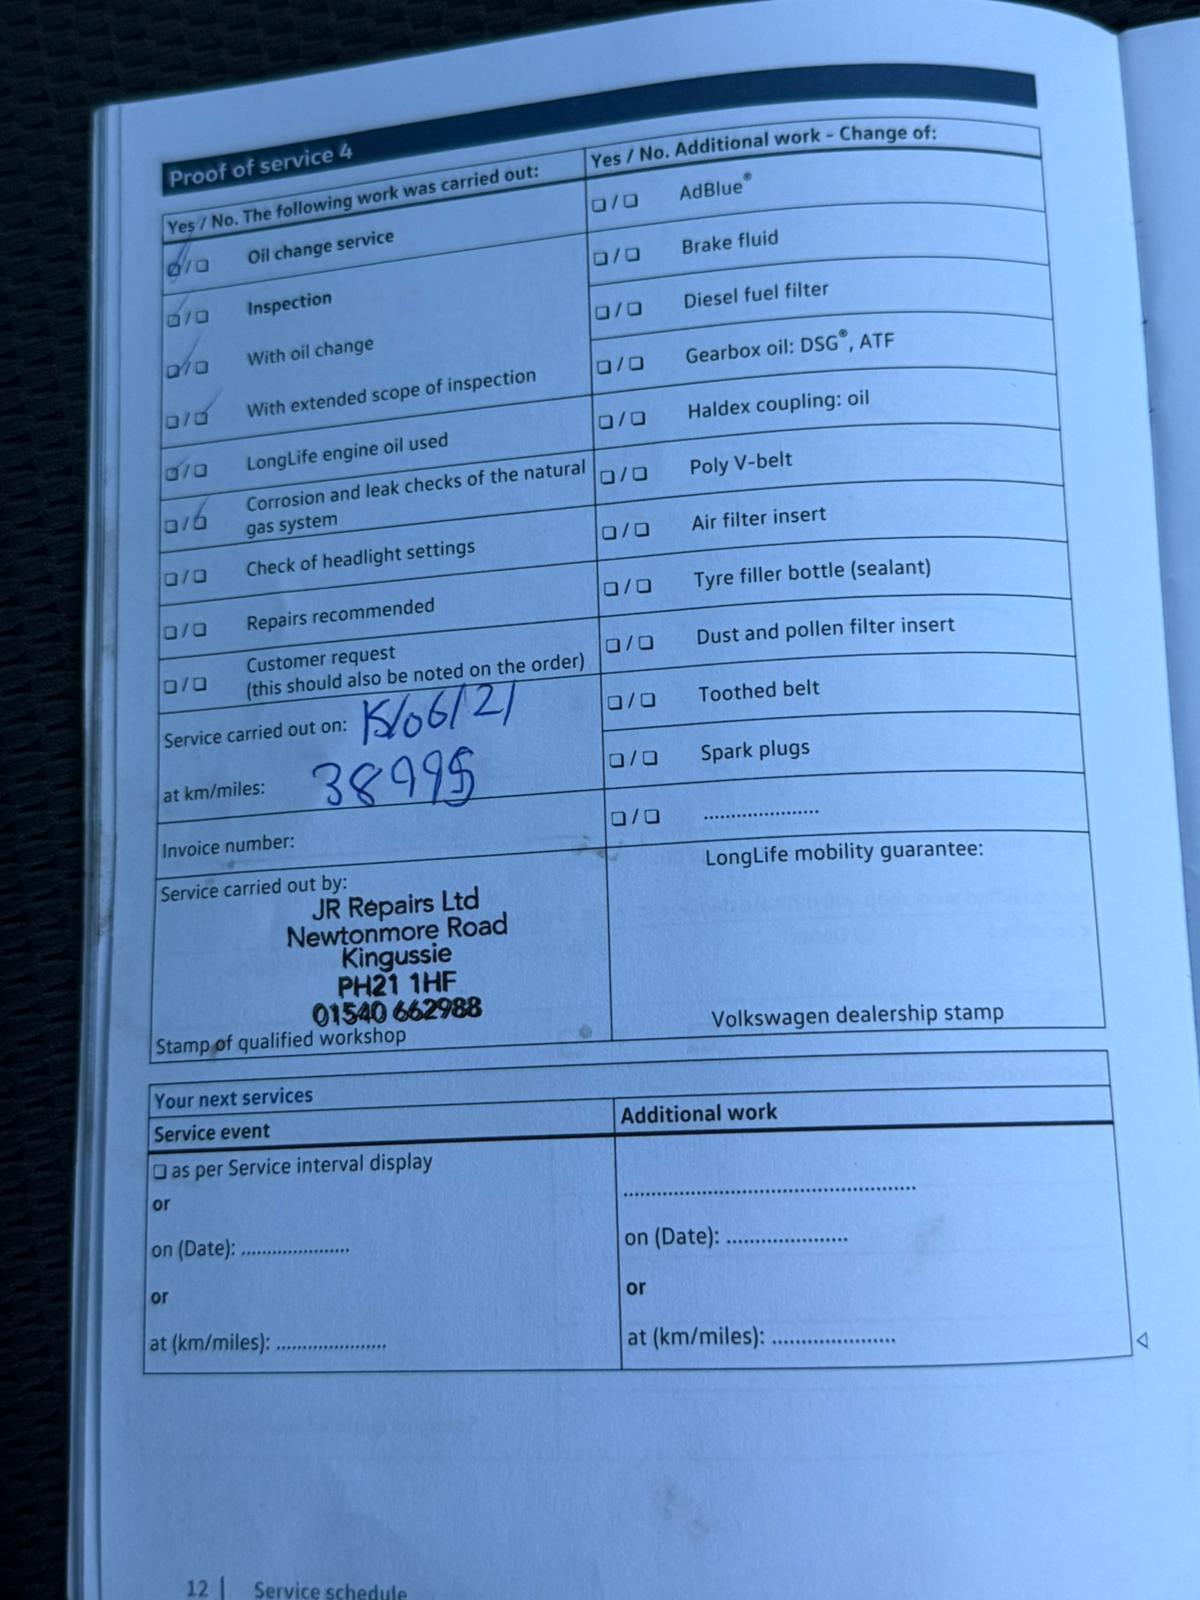 Proof of service 4
Yes / No. The following work was carried out:
Oil change service
Inspection
With oil change
With extended scope of inspection
LongLife engine oil used
Corrosion and leak checks of the natural
gas system
Check of headlight settings
Repairs recommended
Customer request
(this should also be noted on the order)
Service carried out on: 15/06/21
at km/miles: 38995
Invoice number:
Service carried out by:
JR Repairs Ltd
Newtonmore Road
Kingussie
PH21 1HF
01540 662988
Stamp of qualified workshop
Yes / No. Additional work - Change of:
AdBlue®
Brake fluid
Diesel fuel filter
Gearbox oil: DSG®, ATF
Haldex coupling: oil
Poly V-belt
Air filter insert
Tyre filler bottle (sealant)
Dust and pollen filter insert
Toothed belt
Spark plugs
....................
LongLife mobility guarantee:
Volkswagen dealership stamp
Your next services
Service event
as per Service interval display
or
on (Date): ....................
or
at (km/miles): ....................
Additional work
....................
on (Date): ....................
or
at (km/miles): ....................
12 | Service schedule